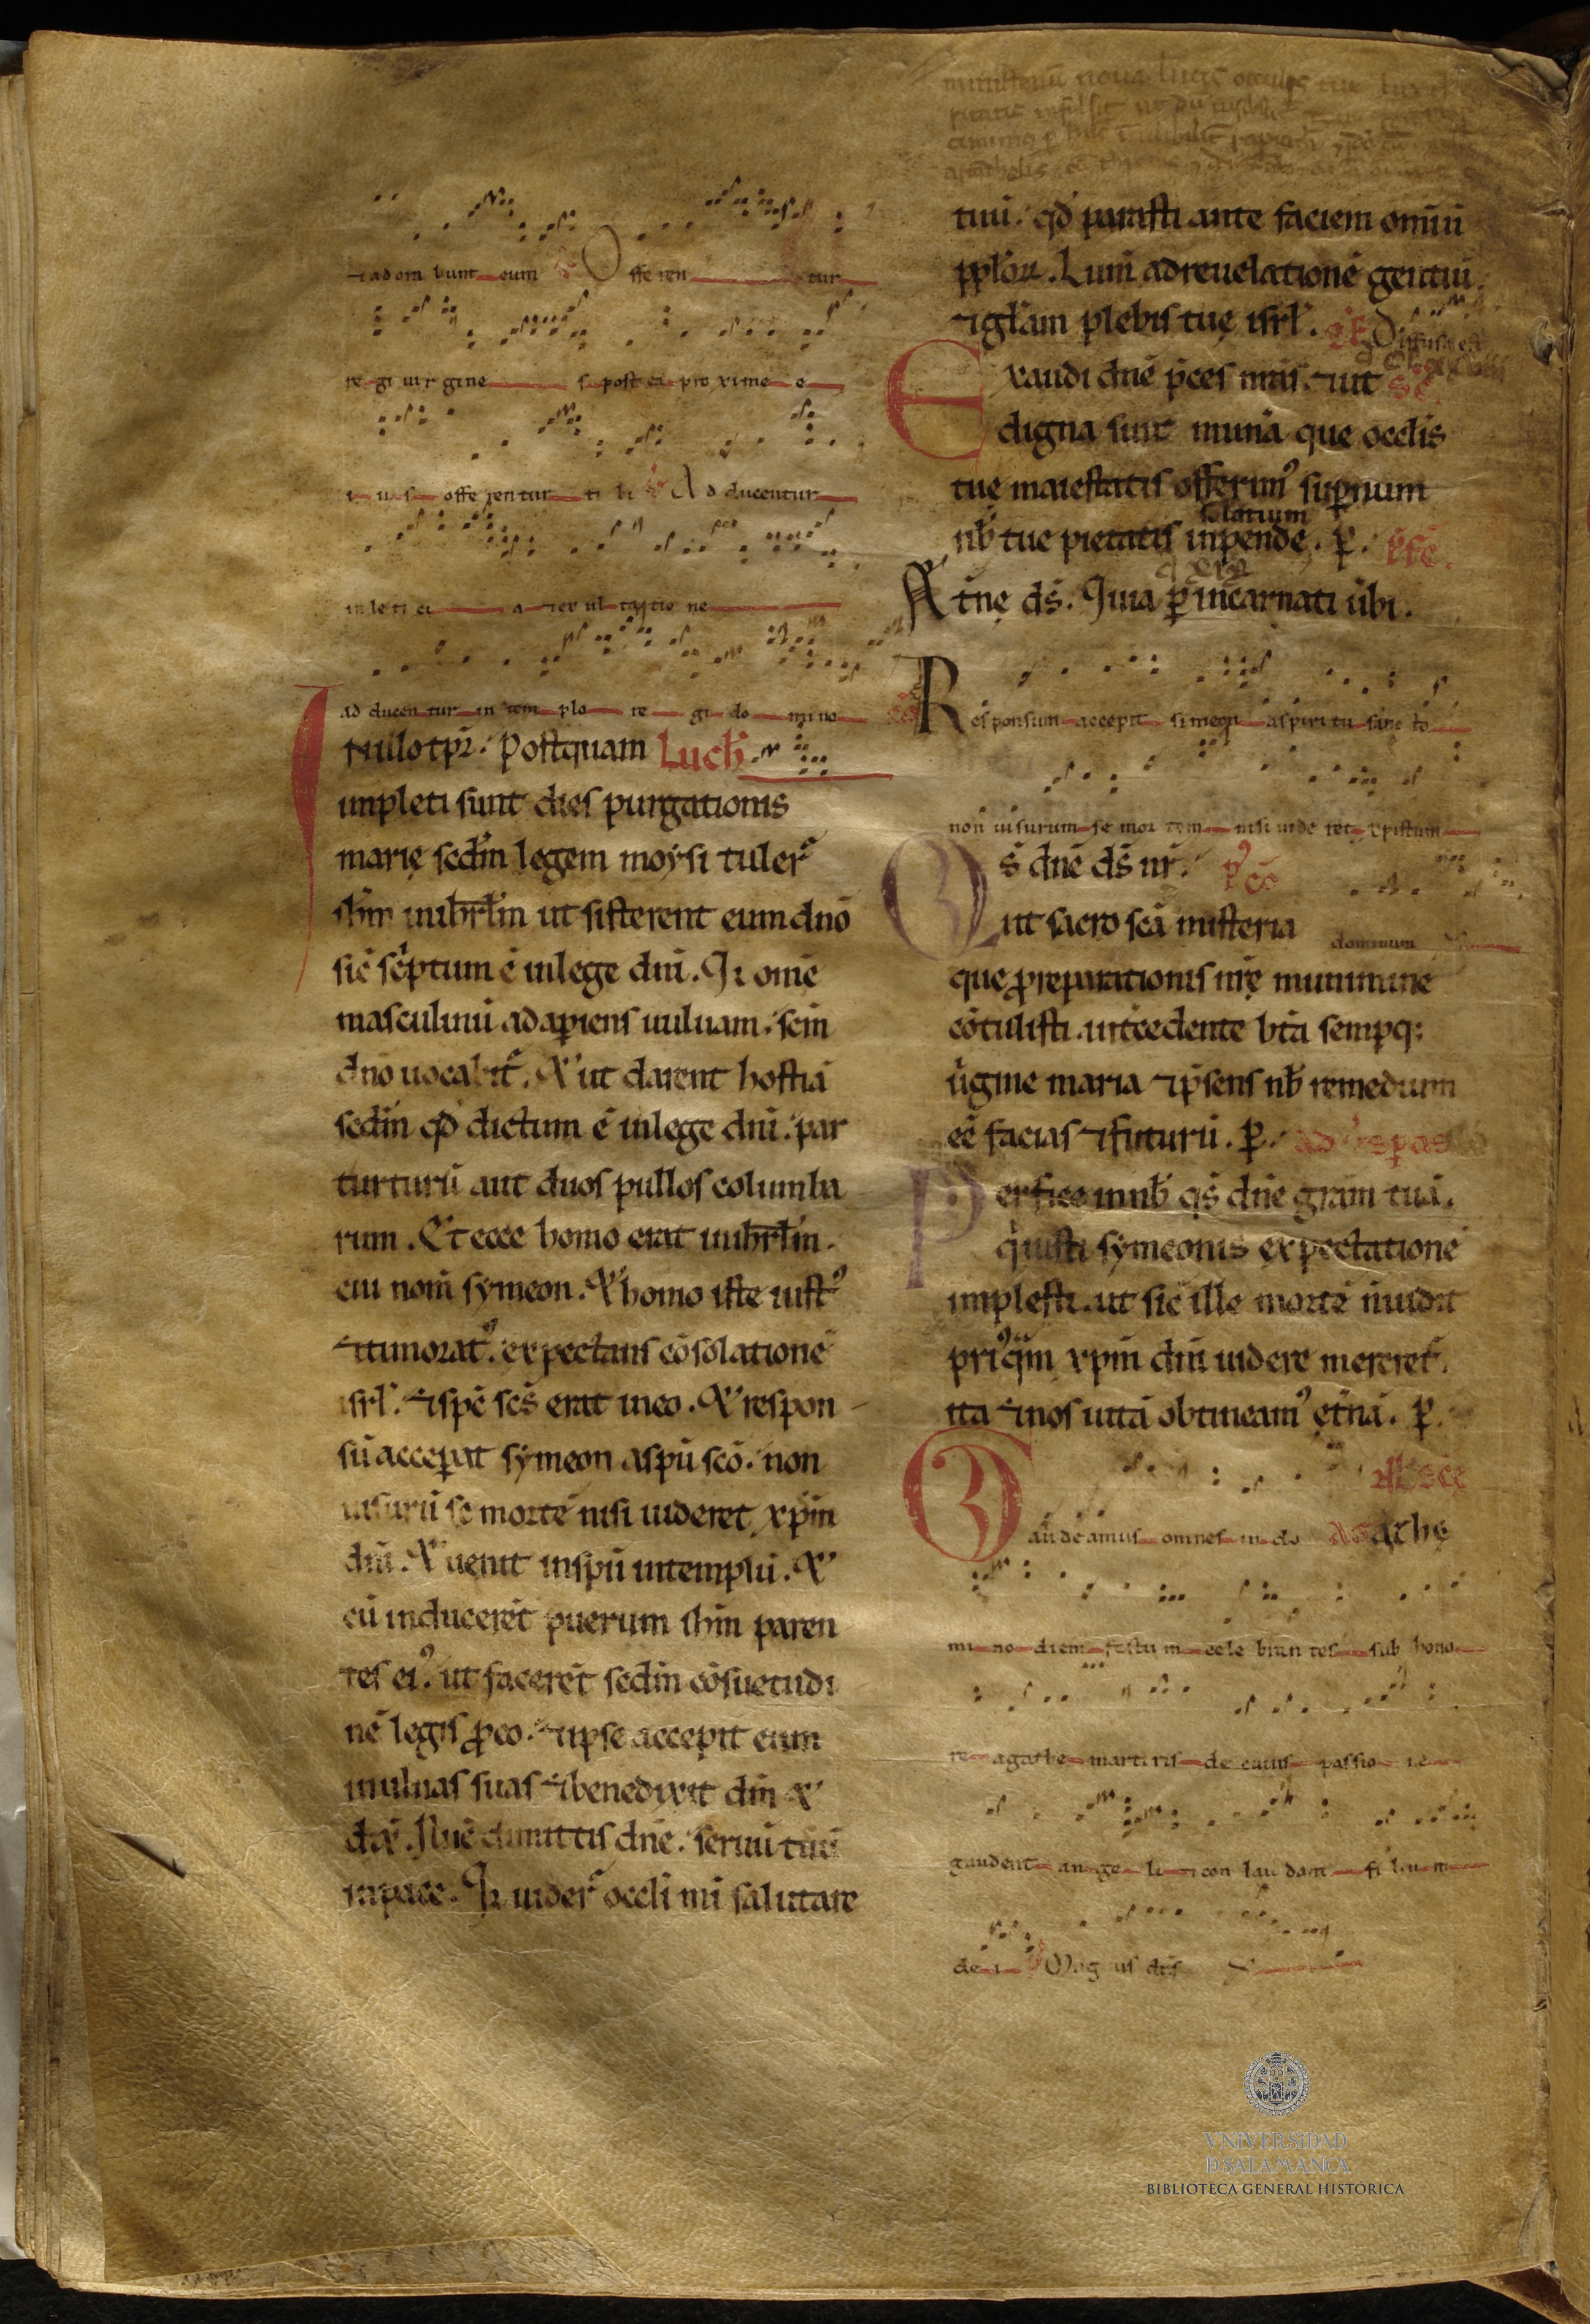 & adorabunt eum Offerentur
regi uirgines post ea proxime e
ius offerentur tibi Adducentur
in leticia & exultatione
adducentur in templo regi domino
In illo tpr. Postquam Luch
impleti sunt dies purgationis
marię scdm legem moysi tuler
ihm in ihrlm ut sisterent eum dno
sic scptum ē in lege dni. Q̄ ome
masculinū adaperiens uuluam. scm
dno uocabit. & ut darent hostiā
scdm qd dictum ē in lege dni. par
turturū aut duos pullos columba
rum. Et ecce homo erat in ihrlm.
cui nom symeon. & homo iste iust
& timorat. expectans cōsolationē
isrl. & sps scs erat in eo. & respon
sū acceperat symeon a spu sco. non
uisurū se mortē nisi uideret xpm
dni. & uenit in spu in templū. &
cū inducerēt puerum ihm paren
tes ei. ut facerēt scdm cōsuetudi
nē legis pro eo. & ipse accepit eum
in ulnas suas & benedixit dm &
dix. Nūc dimittis dne. seruū tuū
in pace. Q̄ uider occli mi salutare
tuū. qd parasti ante faciem omiū
pplor. Lum ad reuelationē gentiū.
& glam plebis tuę isrl. Diffusa est
Exaudi dne pces nras. & ut sc
digna sint munā que occlis
tuę maiestatis offerim supnum
solatium
nb tue pietatis inpende. p. pfc.
Atnę ds. Quia p incarnati ūbi.
Responsum accepit simeon a spiritu sancto
non uisurum se mortem nisi uideret xpistum
Qs dne ds nr. pc
ut sacro scā misteria dominum
que pro reparationis nrę munimine
cōtulisti. intcedente btā sempq;
ūgine maria & psens nb remedium
eē facias & futurū. p. ad uespas
Perfice in nb qs dne gram tuā.
q iusti symeonis expectationē
implesti. ut sic ille mortē n uidit
priqm xpm dm uidere mereret.
ita & nos uitā obtineam ęt̄nā. p.
Gaudeamus omnes in do agathe
mino diem festum celebrantes sub hono
re agathe martiris de cuius passione
gaudent angeli & conlaudant filium
dei Magnus dns